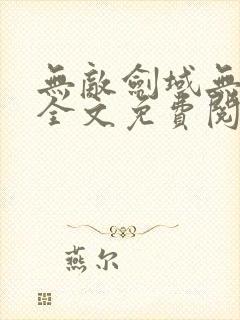 無敵劍域無
全文免費閱
燕尔